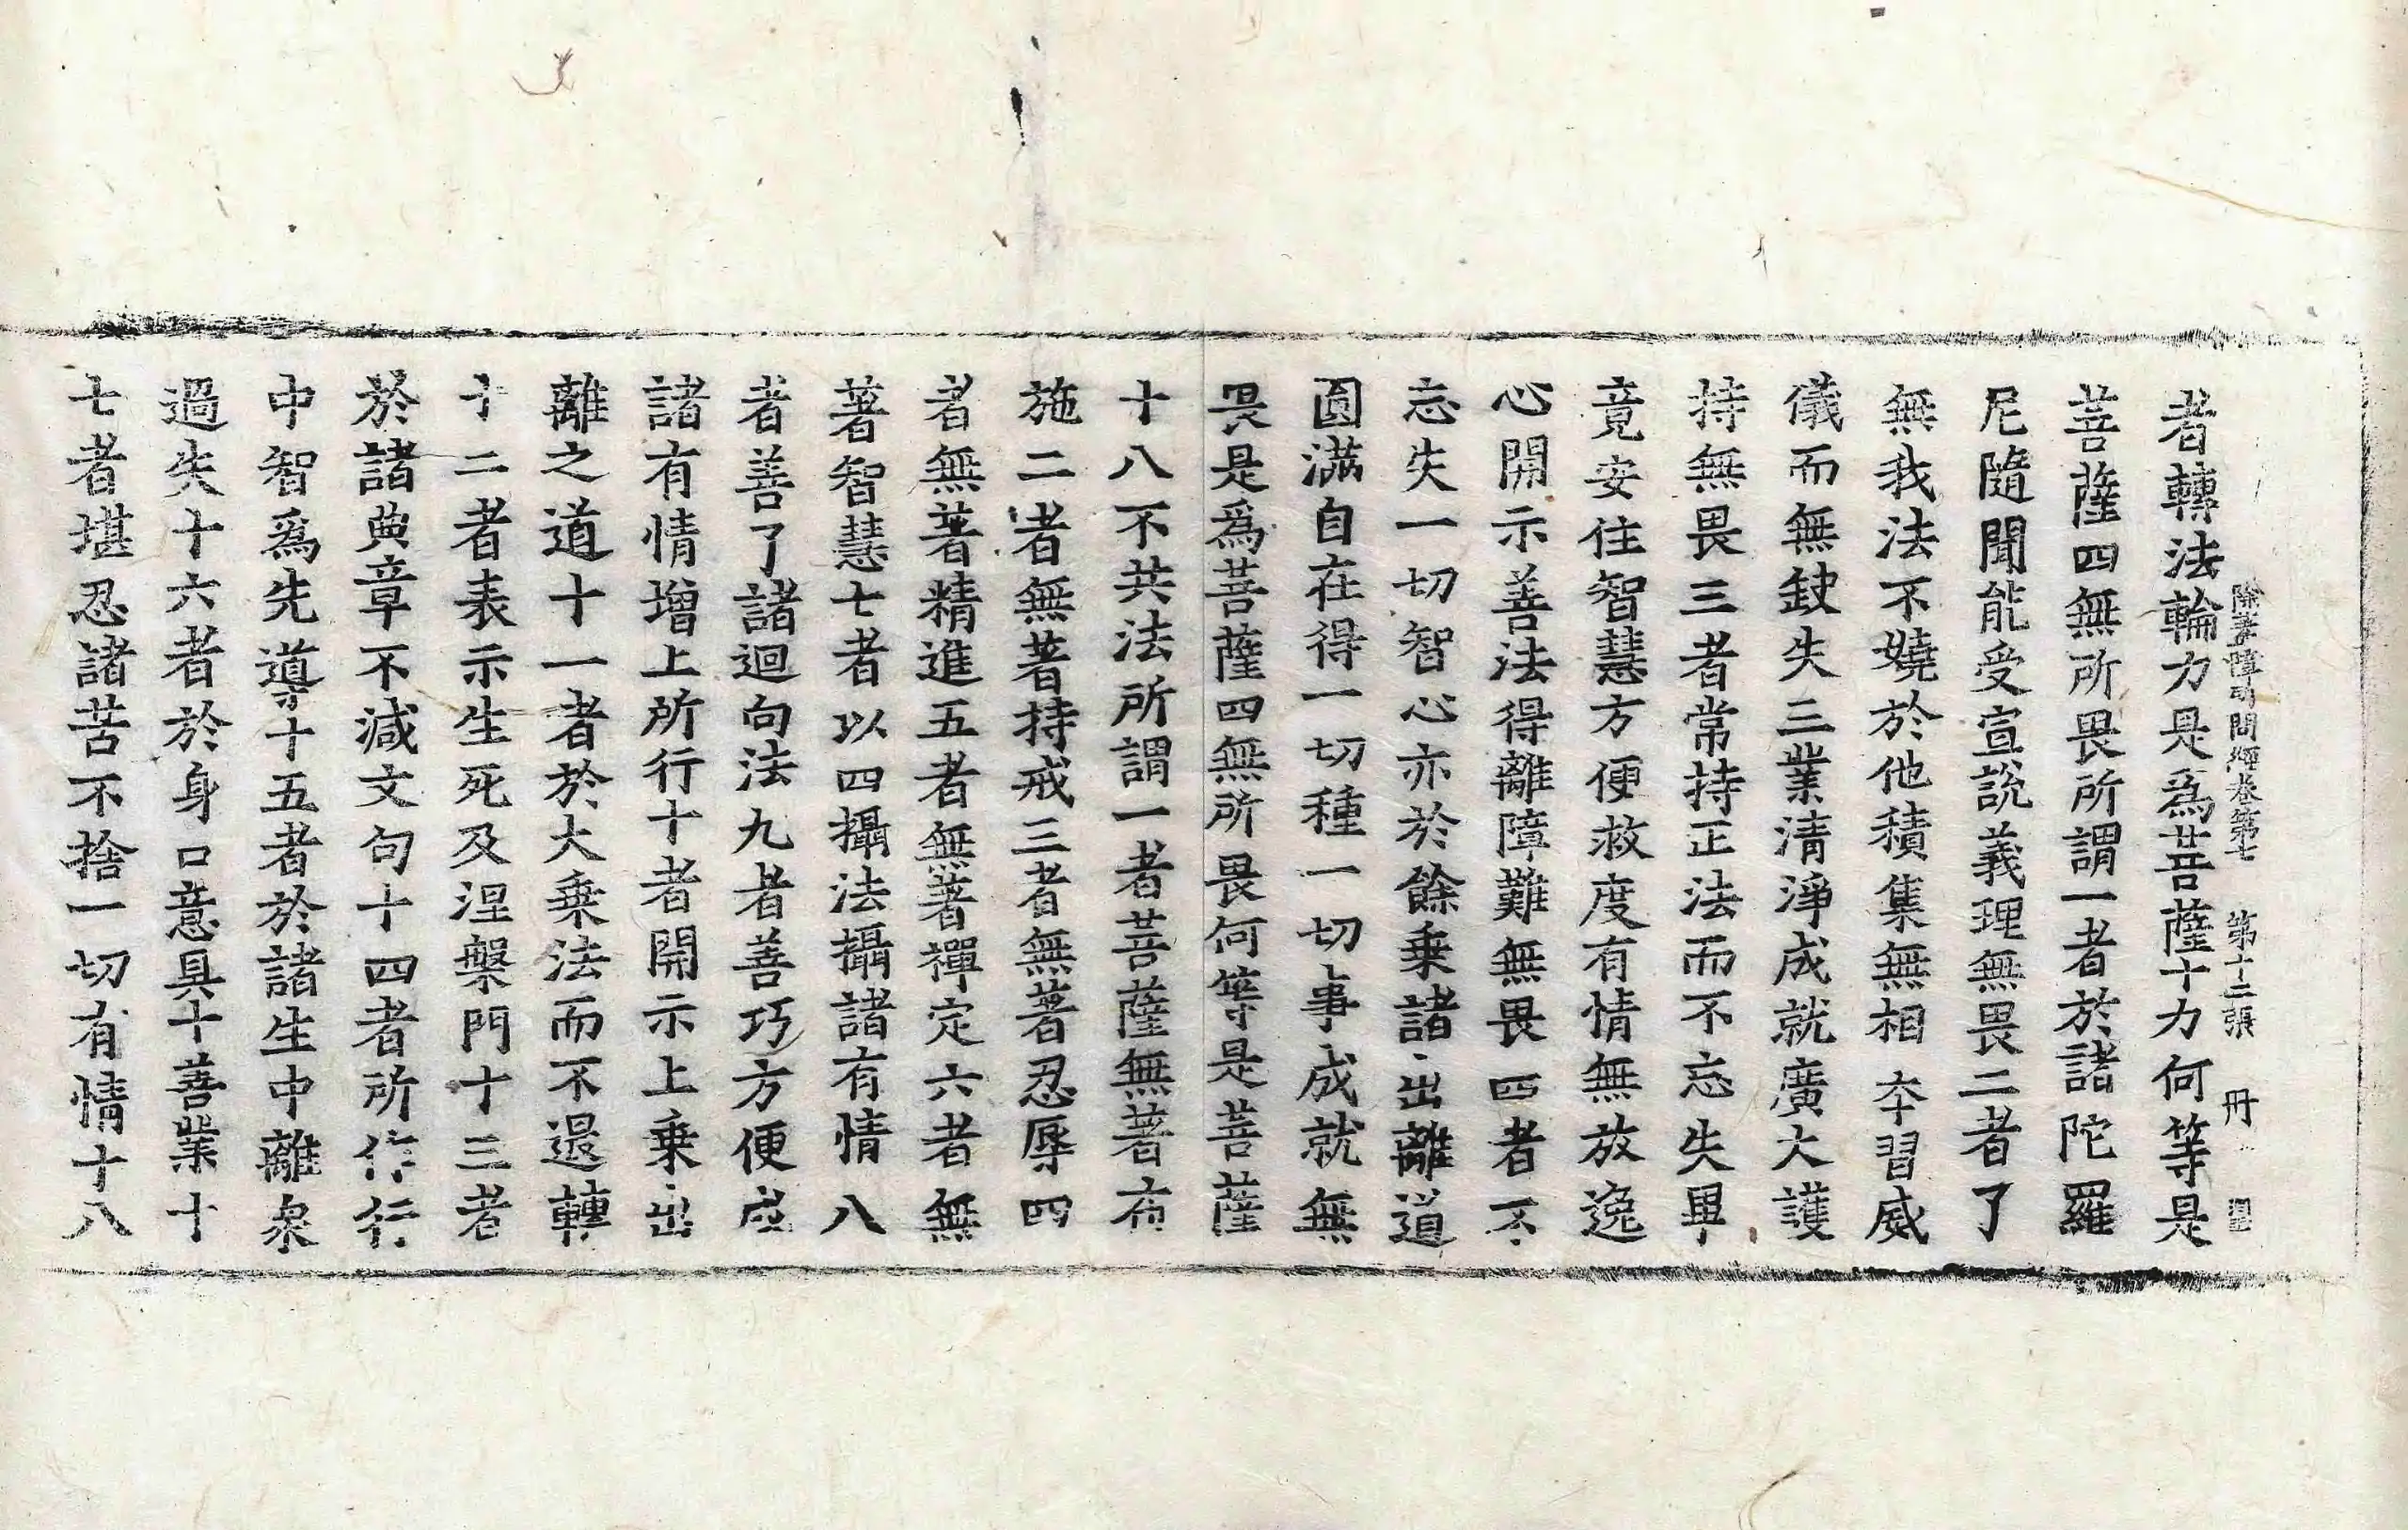 除蓋障所問經卷第七 第十二張 冊
者轉法輪力是爲菩薩十力何等是
菩薩四無所畏所謂一者於諸陀羅
尼隨聞能受宣說義理無畏二者了
無我法不嬈於他積集無相本習威
儀而無缺失三業清淨成就廣大護
持無畏三者常持正法而不忘失畢
竟安住智慧方便救度有情無放逸
心開示善法得離障難無畏四者不
忘失一切智心亦於餘乗諸出離道
圓滿自在得一切種一切事成就無
畏是爲菩薩四無所畏何等是菩薩
十八不共法所謂一者菩薩無著布
施二者無著持戒三者無著忍辱四
者無著精進五者無著禪定六者無
著智慧七者以四攝法攝諸有情八
者善了諸迴向法九者善巧方便應
諸有情增上所行十者開示上乗出
離之道十一者於大乗法而不退轉
十二者表示生死及涅槃門十三者
於諸典章不減文句十四者所作行
中智爲先導十五者於諸生中離衆
過失十六者於身口意具十善業十
七者堪忍諸苦不捨一切有情十八